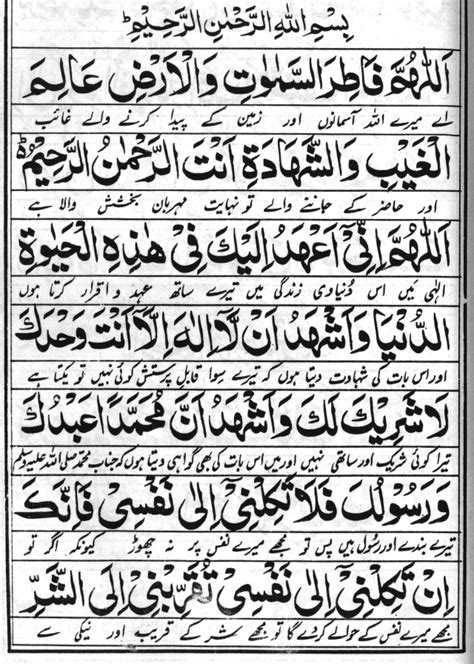 بِسْمِ اللهِ الرَّحْمٰنِ الرَّحِيْمِ
اَللّٰهُمَّ فَاطِرَ السَّمٰوٰتِ وَالْاَرْضِ عَالِمَ
اے میرے اللہ آسمانوں اور زمین کے پیدا کرنے والے غائب
الْغَيْبِ وَالشَّهَادَةِ اَنْتَ الرَّحْمٰنُ الرَّحِيْمُ
اور حاضر کے جاننے والے تو نہایت مہربان بخشش والا ہے
اَللّٰهُمَّ اِنِّيْ اَعْهَدُ اِلَيْكَ فِيْ هٰذِهِ الْحَيٰوةِ
الٰہی میں اس دنیاوی زندگی میں تیرے ساتھ عہد و اقرار کرتا ہوں
الدُّنْيَا وَاَشْهَدُ اَنْ لَّا اِلٰهَ اِلَّا اَنْتَ وَحْدَكَ
اور اس بات کی شہادت دیتا ہوں کہ تیرے سوا قابل پرستش کوئی نہیں تو یکتا ہے
لَا شَرِيْكَ لَكَ وَاَشْهَدُ اَنَّ مُحَمَّدًا عَبْدُكَ
تیرا کوئی شریک اور ساتھی نہیں اور میں اس بات کی بھی گواہی دیتا ہوں کہ جناب محمد صلی اللہ علیہ وسلم
وَرَسُوْلُكَ فَلَا تَكِلْنِيْ اِلٰى نَفْسِيْ فَاِنَّكَ
تیرے بندے اور رسول ہیں پس تو مجھے میرے نفس پر نہ چھوڑ کیونکہ اگر تو
اِنْ تَكِلْنِيْ اِلٰى نَفْسِيْ تُقَرِّبْنِيْ اِلَى الشَّرِّ
مجھے میرے نفس کے حوالے کر دے گا تو مجھے شر کے قریب اور نیکی سے